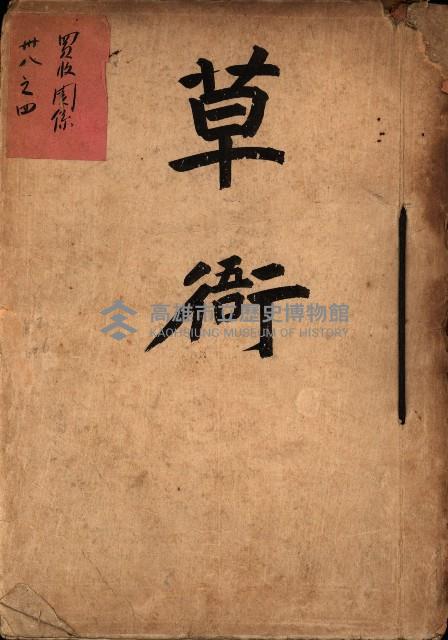 買收関係
卅八之四
草衙
高雄市立歷史博物館
KAOHSIUNG MUSEUM OF HISTORY